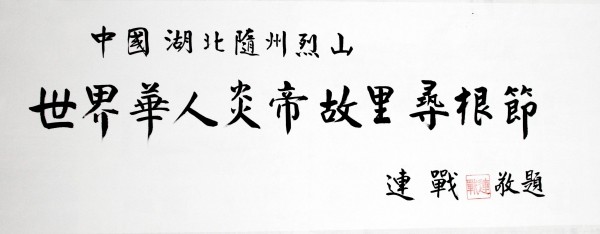 中國湖北隨州烈山
世界華人炎帝故里尋根節
連戰敬題